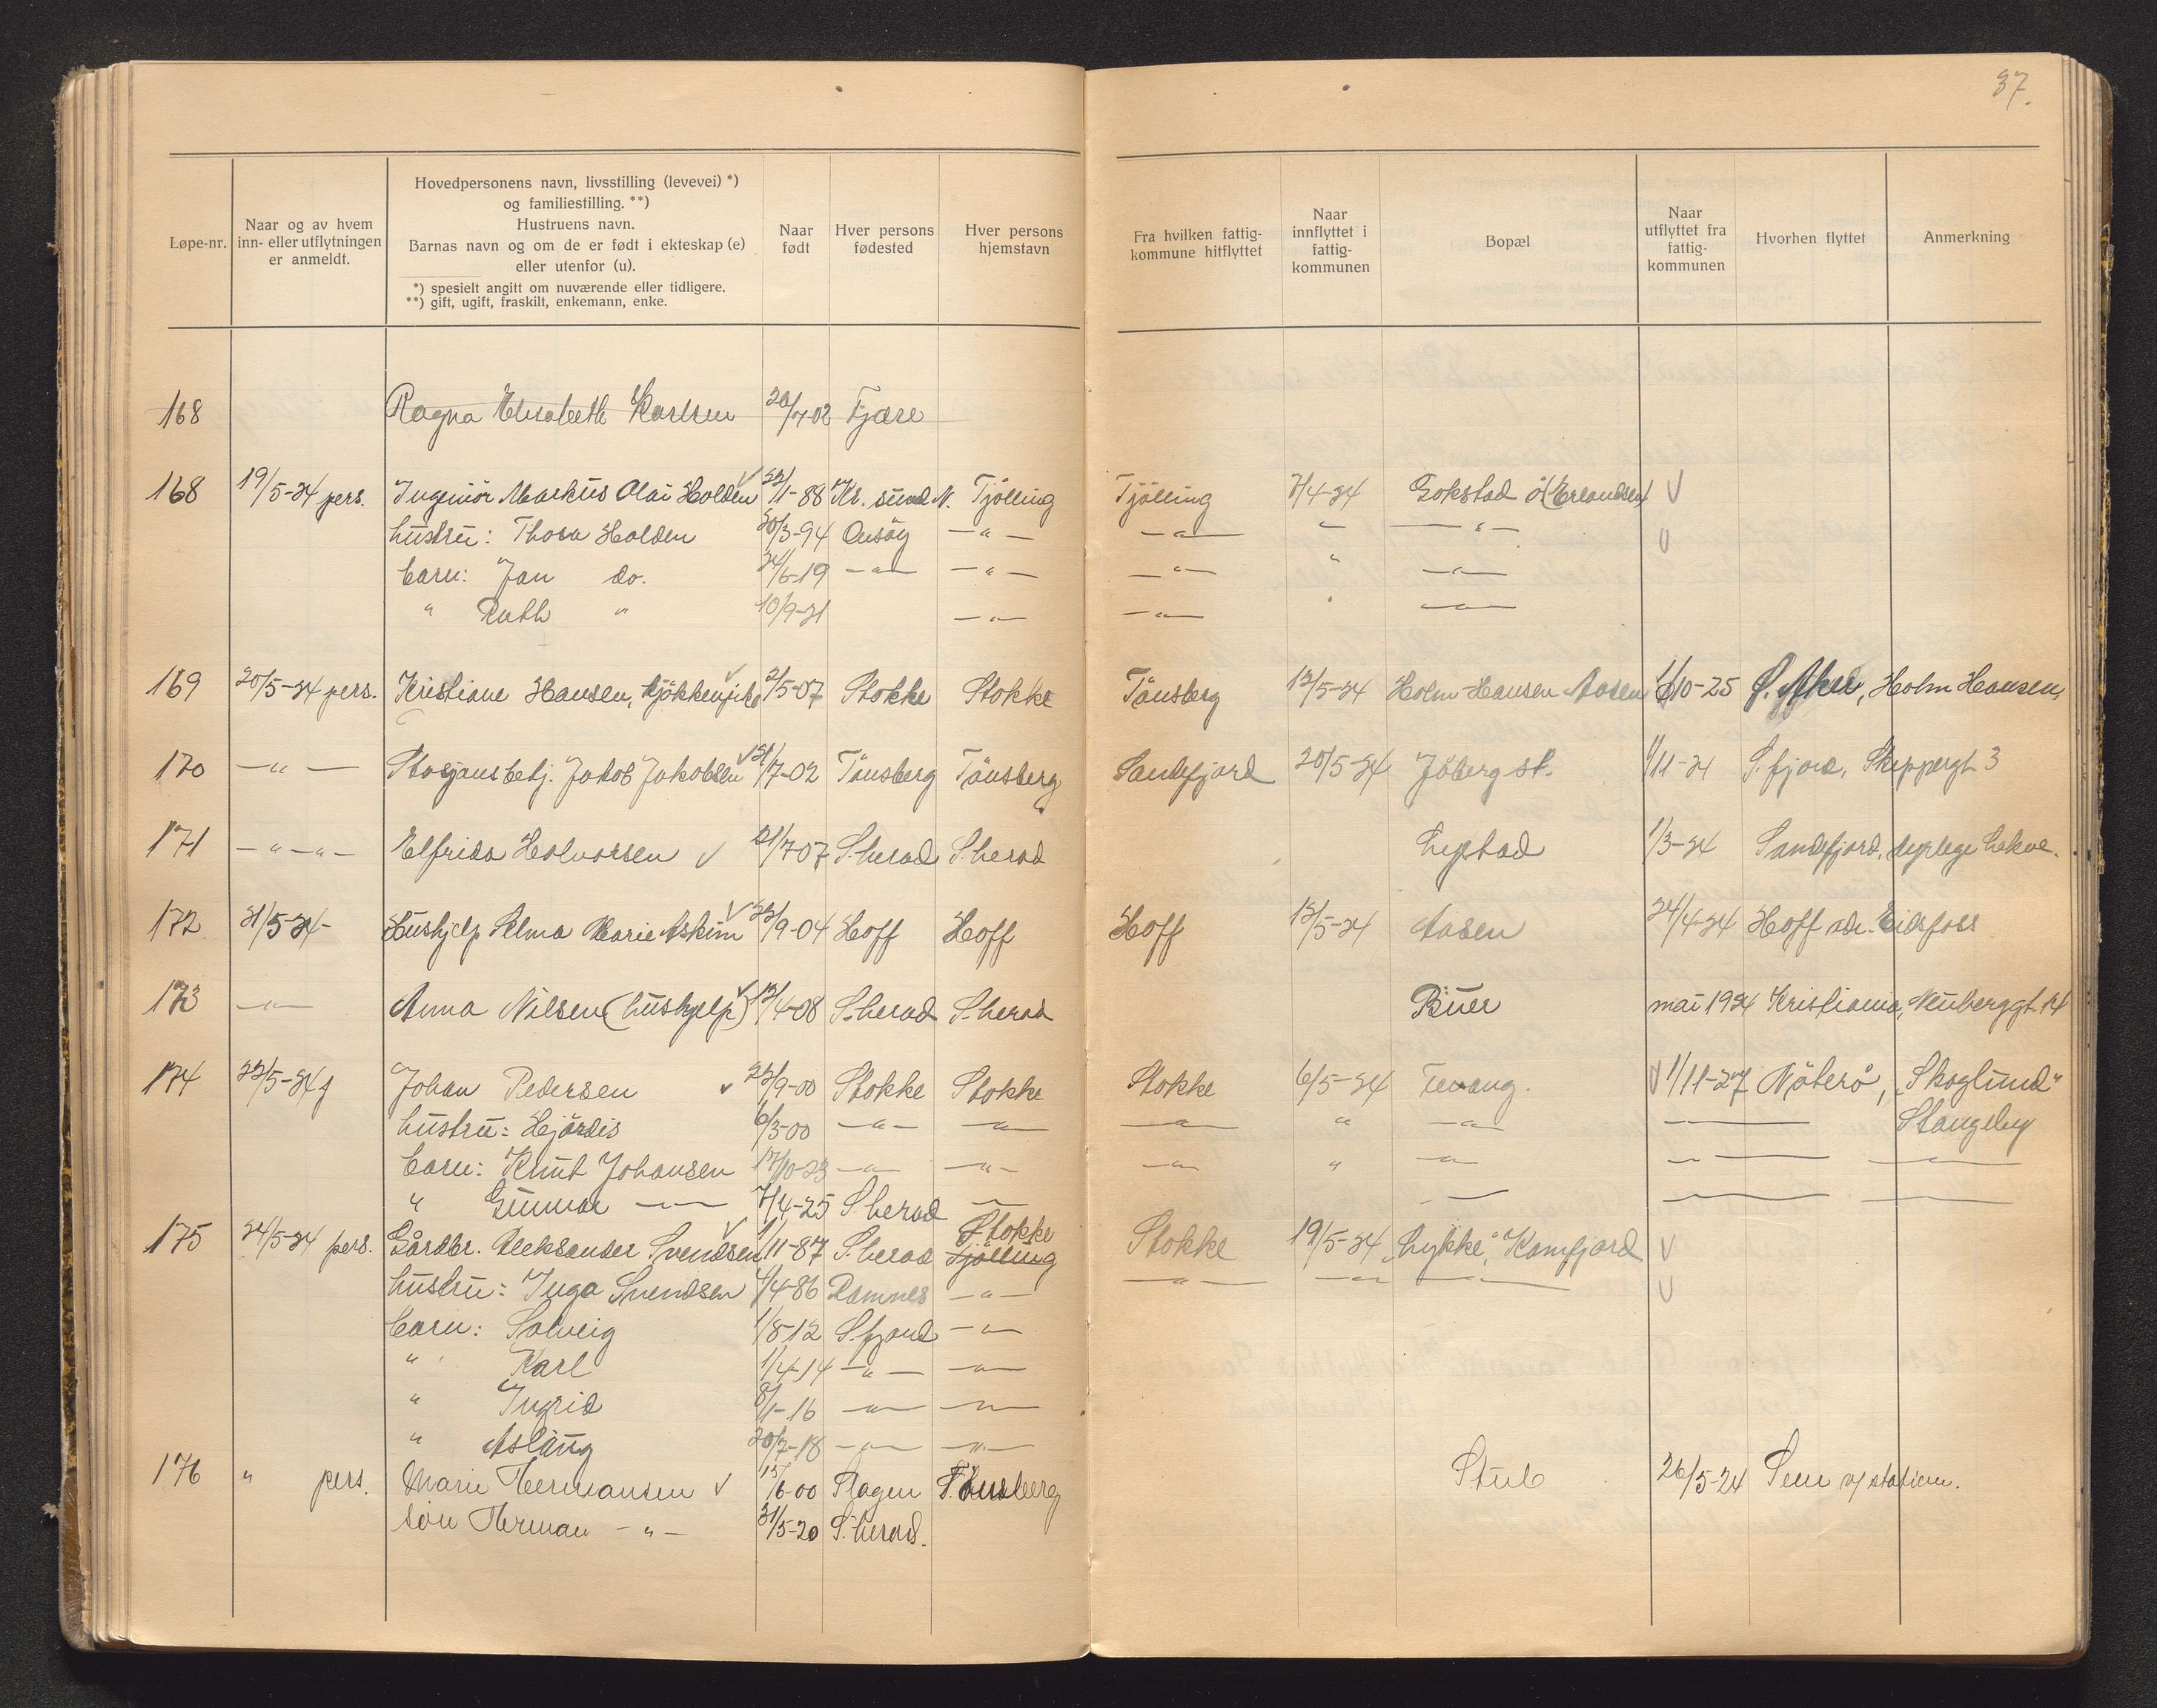 37.
Løpe-nr.
Naar og av hvem
inn- eller utflytningen
er anmeldt.
Hovedpersonens navn, livsstilling (levevei) *)
og familiestilling. **)
Hustruens navn.
Barnas navn og om de er født i ekteskap (e)
eller utenfor (u).
*) spesielt angitt om nuværende eller tidligere.
**) gift, ugift, fraskilt, enkemann, enke.
Naar
født
Hver persons
fødested
Hver persons
hjemstavn
Fra hvilken fattig-
kommune hitflyttet
Naar
innflyttet i
fattig-
kommunen
Bopæl
Naar
utflyttet fra
fattig-
kommunen
Hvorhen flyttet
Anmerkning
168 Ragna Elisabeth Karlsen 20/7-02 Fjære
168 19/5-24 pers. Ingeniör Markus Olai Holden √ 22/1-88 Kr. sund N. Tjölling Tjölling 7/4-24 Gokstad ö (Erlandsen) √
hustru: Thora Holden 30/3-94 Onsöy —"— —"— " —"— √
barn: Jan do. 24/6-19 —"— —"— —"— " —"—
" Ruth " 10/9-21 —"— —"— " —"—
169 20/5-24 pers. Kristiane Hansen, kjökkenpike √ 2/5-07 Stokke Stokke Tönsberg 12/5-24 Holm-Hansen Aasen 1/10-25 Ø. Aker, Holm Hansen,
170 —"— Stasjonsbetj. Jakob Jakobsen √ 21/7-02 Tönsberg Tönsberg Sandefjord 20/5-24 Jåberg st. 1/11-24 S.fjord, Skippergt. 3
171 —"—"— Elfrida Halvorsen √ 21/7-07 S.herad S.herad Lystad 1/3-24 Sandefjord, dyrlege
172 21/5-24- Hushjelp Alma Marie Askim √ 22/9-04 Hoff Hoff Hoff 12/5-24 Aasen 24/4-24 Hoff adr. Eidsfoss
173 —"— Anna Nilsen (hushjelp) √ 12/4-08 S.herad S.herad Buer mai 1924 Kristiania, Neuberggt. 14
174 22/5-24 Johan Pedersen √ 22/9-00 Stokke Stokke Stokke 6/5-24 √ 1/11-27 Nöterö, "Skoglund"
hustru: Hjördis 6/3-00 —"— —"— —"— " —"— —— Stangeby
barn: Knut Johansen 17/10-23 —"— —"— —"— " —"— —— ——
" Gunnar —— 7/4-25 S.herad — — —— ——
175 24/5-24 pers. Gårdbr. Aleksander Svendsen √ 1/11-87 S.herad Stokke Tjölling Stokke 19/5-24 "Lykke", Kamfjord √
hustru: Inga Svendsen 4/4-86 Ramnes —"— —"— —"— —"— √
barn: Solveig 1/8-12 S.fjord —"—
" Karl 1/4-14 —"— —"—
" Ingrid 8/1-16 —"— —"—
" Aslaug 20/7-18 —"— —"—
176 " pers. Marie Hermansen √ 15/6-00 Slagen Tönsberg Stub 26/5-24 Sem v/ stasjon.
sön Herman —"— 31/5-20 S.herad.